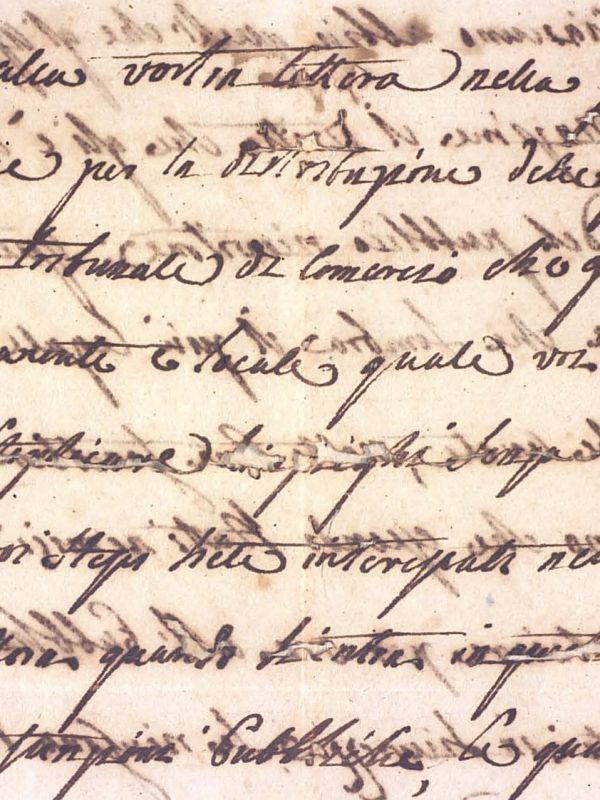 alla vostra lettera nella
per la distribuzione delle
Tribunale di Comercio che q
arente e locale quale voi
impieghi senza
oi stessi siete interessati nel
lora quando si entra in quest
funzioni Pubbliche, le qua